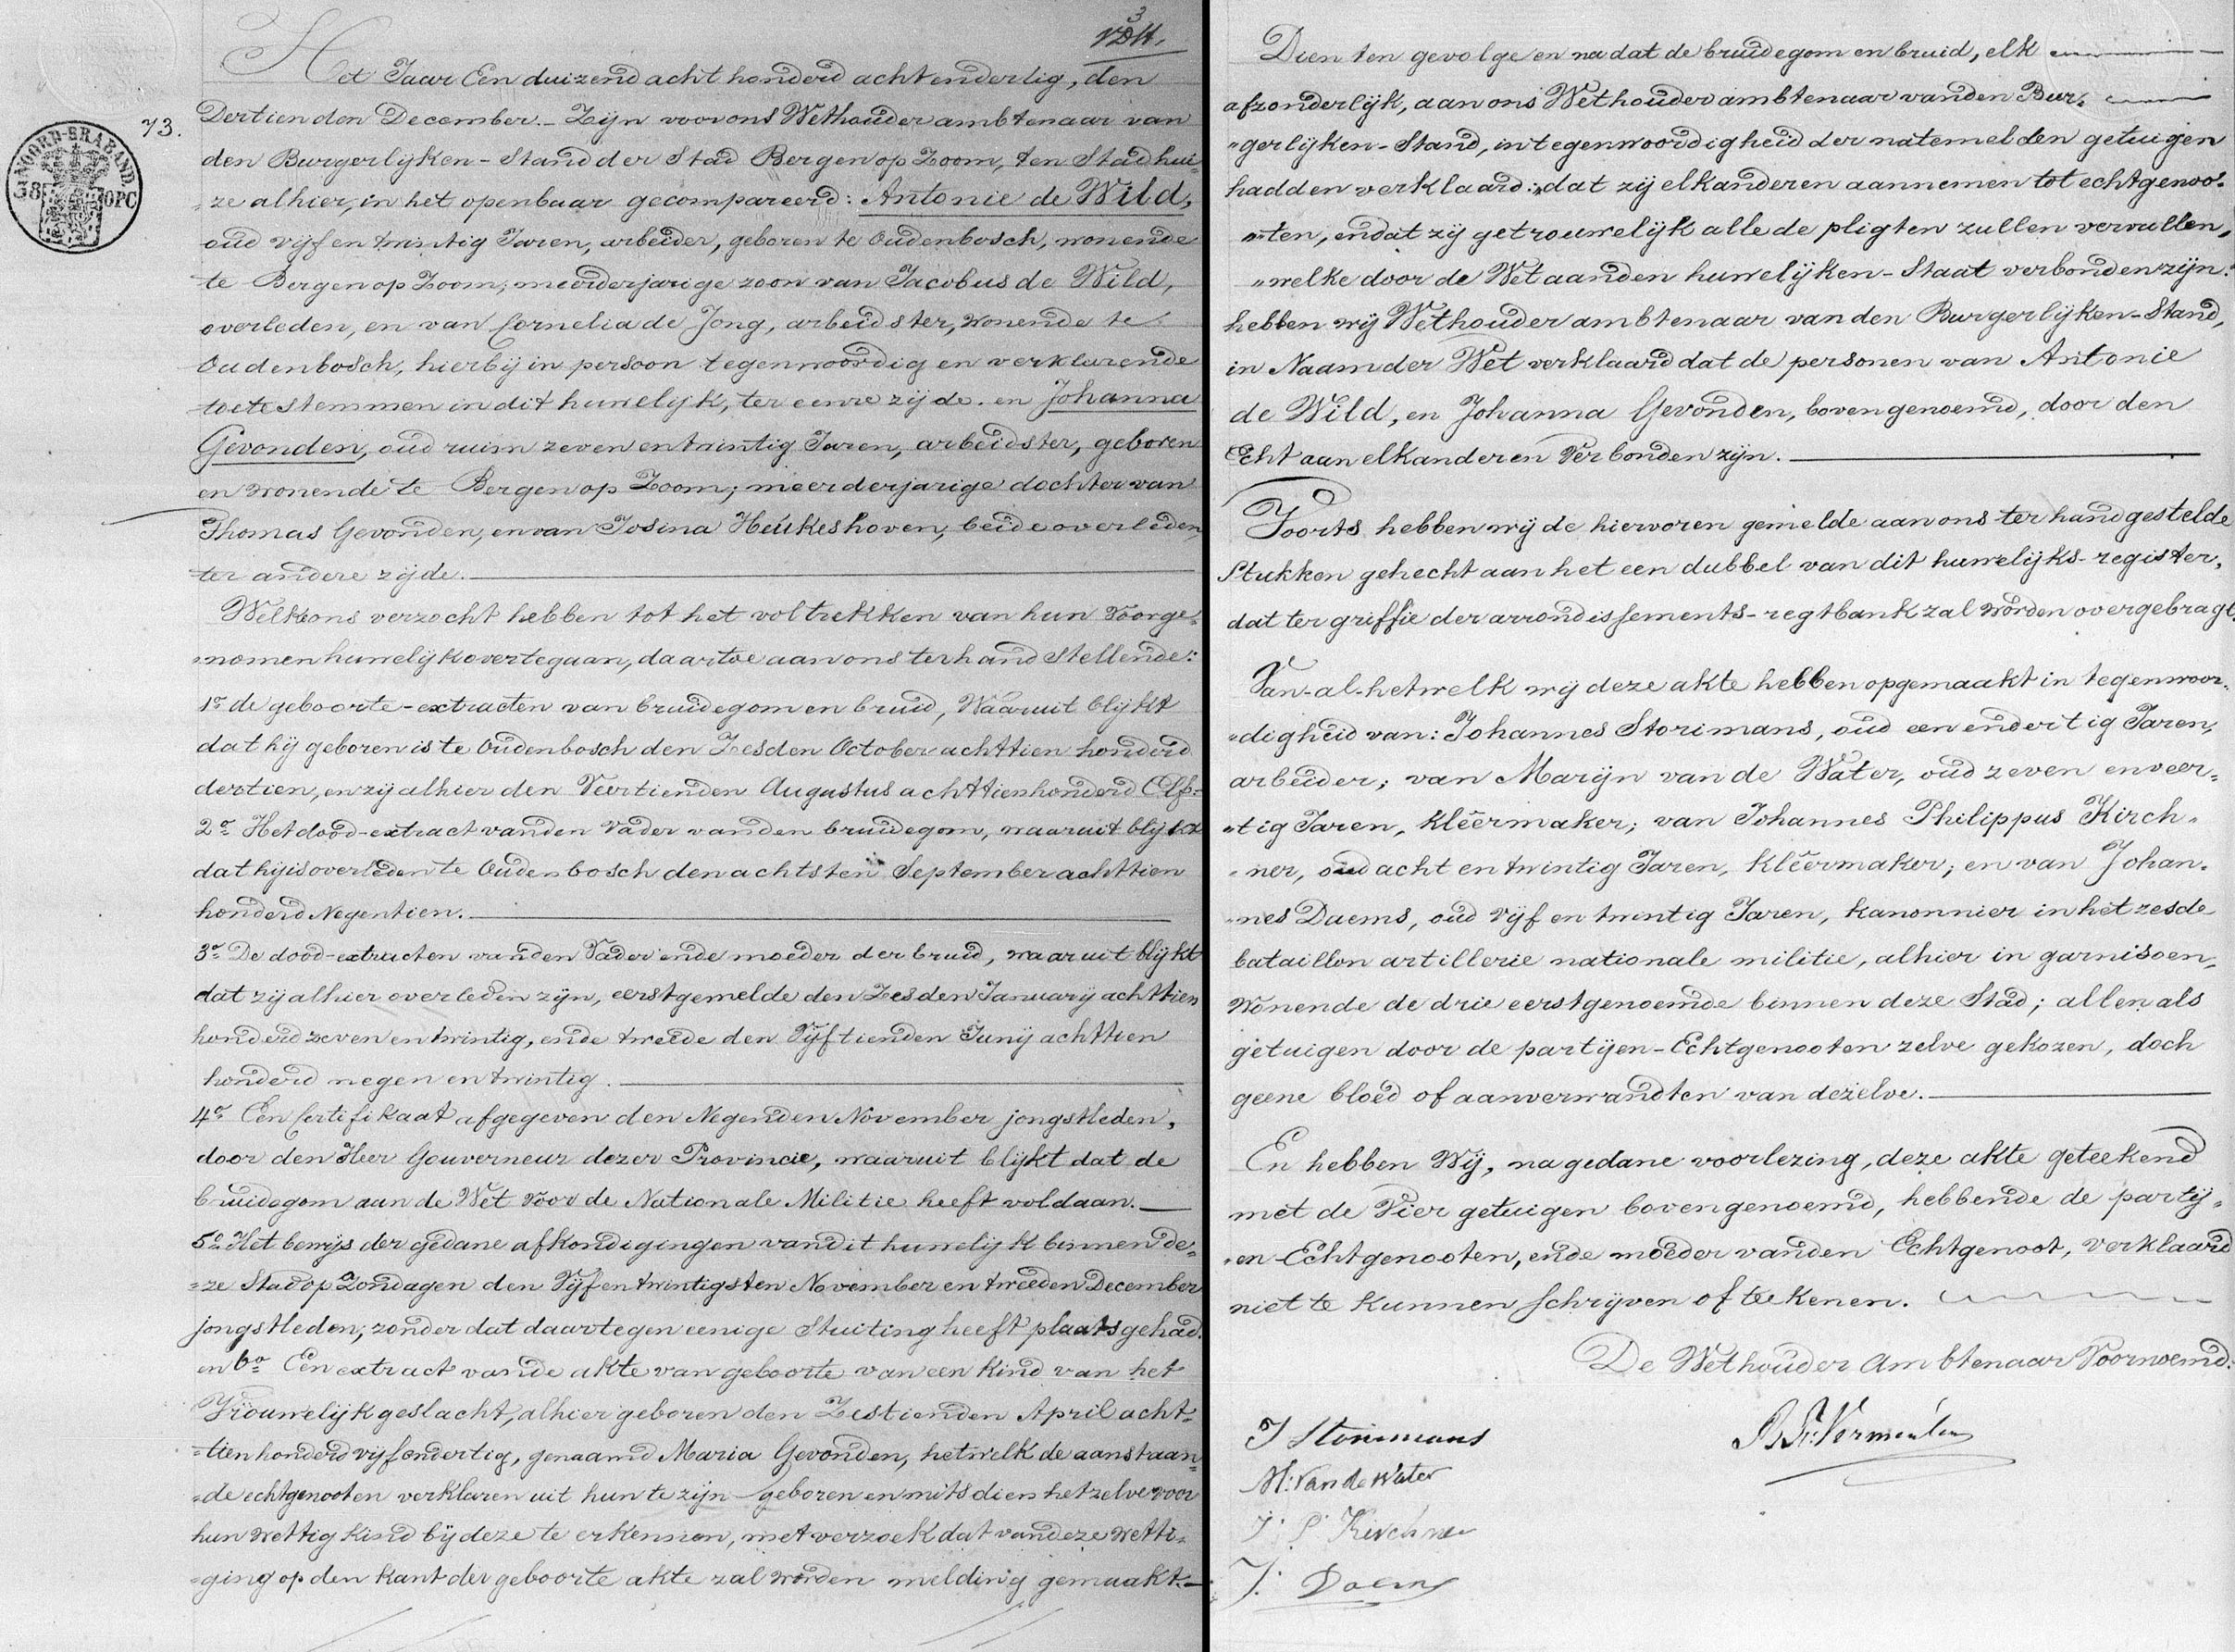 3
VDH.
Het Jaar Een duizend acht honderd achtendertig, den
73. Dertienden December. – Zijn voor ons Wethouder ambtenaar van
NOORD-BRABAND
38 OPC
den Burgerlijken-Stand der Stad Bergen op Zoom, ten Stadhui-
"ze alhier, in het openbaar gecompareerd: Antonie de Wild,
oud vijf en twintig Jaren, arbeider, geboren te Oudenbosch, wonende
te Bergen op Zoom; meerderjarige zoon van Jacobus de Wild,
overleden, en van Cornelia de Jong, arbeidster, wonende te
Oudenbosch, hierbij in persoon tegenwoordig en verklarende
toetestemmen in dit huwelijk, ter eenre zijde. en Johanna
Gevonden, oud ruim zeven en twintig Jaren, arbeidster, geboren
en wonende te Bergen op Zoom; meerderjarige dochter van
Thomas Gevonden, en van Josina Heukeshoven, beide overleden,
ter andere zijde.
Welke ons verzocht hebben tot het voltrekken van hun voorge-
"nomen huwelijk overtegaan, daartoe aan ons ter hand stellende:
1o de geboorte-extracten van bruidegom en bruid, Waaruit blijkt
dat hij geboren is te Oudenbosch den Zesden October achttien honderd
dertien, en zij alhier den Veertienden Augustus achttienhonderd Elf.
2o Het dood-extract van den Vader van den bruidegom, waaruit blijkt
dat hij is overleden te Oudenbosch den achtsten September achttien
honderd Negentien.
3o De dood-extracten van den Vader en de moeder der bruid, waaruit blijkt
dat zij alhier overleden zijn, eerstgemelde den Zesden January achttien
honderd zeven en twintig, en de tweede den Vijftienden Junij achttien
honderd negen en twintig.
4o Een Certifikaat afgegeven den Negenden November jongstleden,
door den Heer Gouverneur dezer Provincie, waaruit blijkt dat de
bruidegom aan de Wet voor de Nationale Militie heeft voldaan.
5o Het bewijs der gedane afkondigingen van dit huwelijk binnen de-
"ze Stad op Zondagen den Vijf en twintigsten November en tweeden December
jongstleden, zonder dat daartegen eenige Stuiting heeft plaats gehad.
en 6o Een extract van de akte van geboorte van een Kind van het
Vrouwelijk geslacht, alhier geboren den Zestienden April acht-
"tien honderd vijfendertig, genaamd Maria Gevonden, hetwelk de aanstaan-
"de echtgenooten verklaren uit hun te zijn geboren en mits dien hetzelve voor
hun wettig kind bij deze te erkennen, met verzoek dat van deze wetti-
"ging op den kant der geboorte akte zal worden melding gemaakt.
Dien ten gevolge en na dat de bruidegom en bruid, elk
afzonderlijk, aan ons Wethouder ambtenaar van den Bur-
"gerlijken-Stand, in tegenwoordigheid der natemelden getuigen
hadden verklaard: "dat zij elkanderen aannemen tot echtgenoo-
"ten, en dat zij getrouwelijk alle de pligten zullen vervullen,
"welke door de Wet aan den huwelijken-Staat verbonden zijn."
hebben wij Wethouder ambtenaar van den Burgerlijken-Stand,
in Naam der Wet verklaard dat de personen van Antonie
de Wild, en Johanna Gevonden, bovengenoemd, door den
Echt aan elkanderen Verbonden zijn.
Voorts hebben wij de hiervoren gemelde aan ons ter hand gestelde
Stukken gehecht aan het een dubbel van dit huwelijks-register,
dat ter griffie der arrondissements-regtbank zal worden overgebragt.
Van-al-hetwelk wij deze akte hebben opgemaakt in tegenwoor-
"digheid van: Johannes Storimans, oud een en dertig Jaren,
arbeider; van Marijn van de Water, oud zeven en veer-
"tig Jaren, kleêrmaker; van Johannes Philippus Kirch-
"ner, oud acht en twintig Jaren, kleêrmaker; en van Johan-
"nes Daems, oud vijf en twintig Jaren, kanonnier in het zesde
bataillon artillerie nationale militie, alhier in garnisoen,
wonende de drie eerstgenoemde binnen deze Stad; allen als
getuigen door de partijen-Echtgenooten zelve gekozen, doch
geene bloed of aanverwandten van dezelve.
En hebben Wij, na gedane voorlezing, deze akte geteekend
met de Vier getuigen bovengenoemd, hebbende de partij-
"en-Echtgenooten, en de moeder van den Echtgenoot, verklaard
niet te kunnen schrijven of teekenen.
De Wethouder Ambtenaar Voornoemd:
J Storimans
Vermeulen
M: Van de Water
J: P: Kirchner
J: Daems